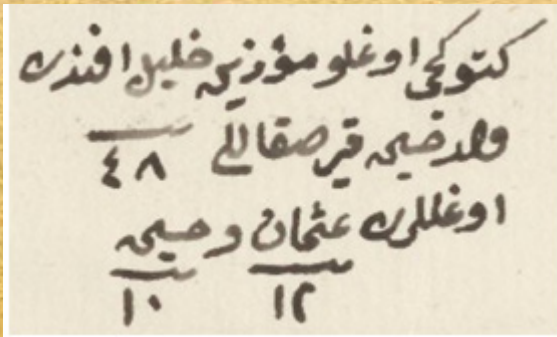 كتوكجى اوغلو مؤذن خليل افندى
ولد خليل قير صقاللى ٤٨
اوغللرى عثمان و حسين
١٢ ١٠